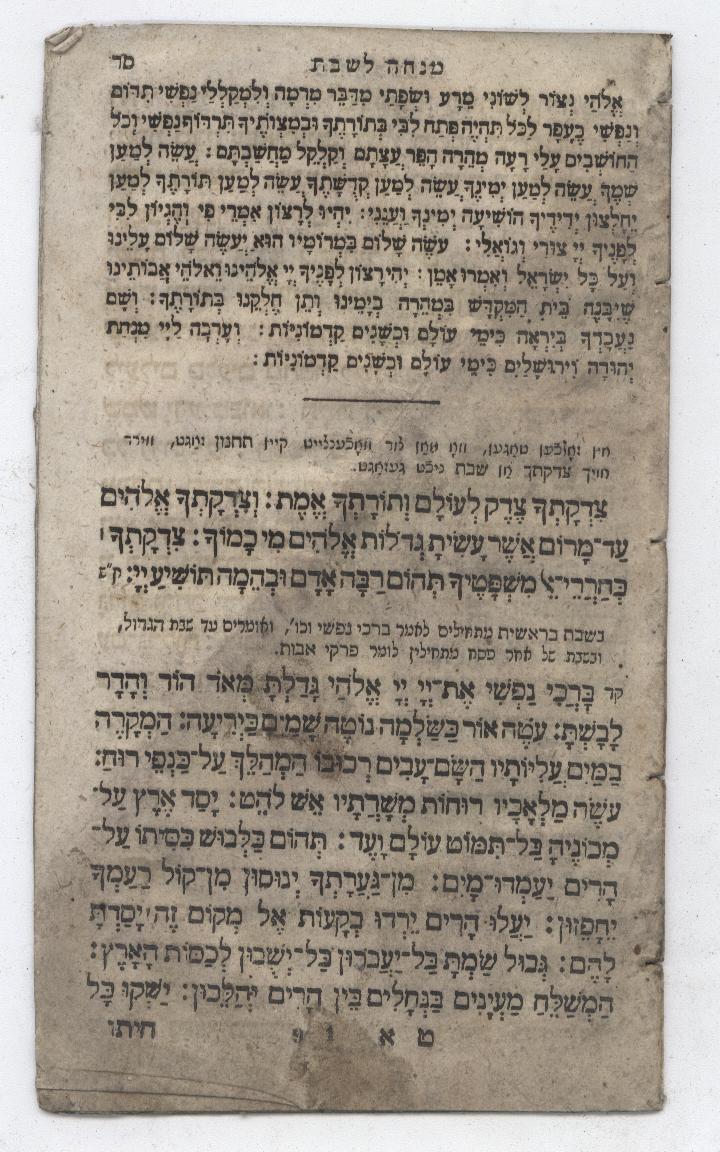 מנחה לשבת סד
אֱלֹהַי נְצוֹר לְשׁוֹנִי מֵרָע וּשְׂפָתַי מִדַּבֵּר מִרְמָה וְלִמְקַלְלַי נַפְשִׁי תִדּוֹם
וְנַפְשִׁי כֶּעָפָר לַכֹּל תִּהְיֶה פְּתַח לִבִּי בְּתוֹרָתֶךָ וּבְמִצְוֹתֶיךָ תִּרְדּוֹף נַפְשִׁי וְכָל
הַחוֹשְׁבִים עָלַי רָעָה מְהֵרָה הָפֵר עֲצָתָם וְקַלְקֵל מַחֲשַׁבְתָּם: עֲשֵׂה לְמַעַן
שְׁמֶךָ עֲשֵׂה לְמַעַן יְמִינֶךָ עֲשֵׂה לְמַעַן קְדֻשָּׁתֶךָ עֲשֵׂה לְמַעַן תּוֹרָתֶךָ לְמַעַן
יֵחָלְצוּן יְדִידֶיךָ הוֹשִׁיעָה יְמִינְךָ וַעֲנֵנִי: יִהְיוּ לְרָצוֹן אִמְרֵי פִי וְהֶגְיוֹן לִבִּי
לְפָנֶיךָ יְיָ צוּרִי וְגוֹאֲלִי: עֹשֶׂה שָׁלוֹם בִּמְרוֹמָיו הוּא יַעֲשֶׂה שָׁלוֹם עָלֵינוּ
וְעַל כָּל יִשְׂרָאֵל וְאִמְרוּ אָמֵן: יְהִי רָצוֹן לְפָנֶיךָ יְיָ אֱלֹהֵינוּ וֵאלֹהֵי אֲבוֹתֵינוּ
שֶׁיִּבָּנֶה בֵּית הַמִּקְדָּשׁ בִּמְהֵרָה בְיָמֵינוּ וְתֵן חֶלְקֵנוּ בְּתוֹרָתֶךָ: וְשָׁם
נַעֲבָדְךָ בְּיִרְאָה כִּימֵי עוֹלָם וּכְשָׁנִים קַדְמוֹנִיּוֹת: וְעָרְבָה לַיְיָ מִנְחַת
יְהוּדָה וִירוּשָׁלָיִם כִּימֵי עוֹלָם וּכְשָׁנִים קַדְמוֹנִיּוֹת:
טאגען, וואו מאן קיין תחנון זאגט, ווירד
אויך צדקתך אן שבת ניכט געזאגט.
צִדְקָתְךָ צֶדֶק לְעוֹלָם וְתוֹרָתְךָ אֱמֶת: וְצִדְקָתְךָ אֱלֹהִים
עַד־מָרוֹם אֲשֶׁר עָשִׂיתָ גְדֹלוֹת אֱלֹהִים מִי כָמוֹךָ: צִדְקָתְךָ
כְּהַרְרֵי־אֵל מִשְׁפָּטֶיךָ תְּהוֹם רַבָּה אָדָם וּבְהֵמָה תוֹשִׁיעַ יְיָ: ק״ש
בשבת בראשית מתחילים לאמר ברכי נפשי וכו', ואומרים עד שבת הגדול,
ובשבת של אחר פסח מתחילין לומר פרקי אבות.
קד בָּרֲכִי נַפְשִׁי אֶת־יְיָ יְיָ אֱלֹהַי גָּדַלְתָּ מְּאֹד הוֹד וְהָדָר
לָבָשְׁתָּ: עֹטֶה אוֹר כַּשַּׂלְמָה נוֹטֶה שָׁמַיִם כַּיְרִיעָה: הַמְקָרֶה
בַמַּיִם עֲלִיּוֹתָיו הַשָּׂם־עָבִים רְכוּבוֹ הַמְהַלֵּךְ עַל־כַּנְפֵי רוּחַ:
עֹשֶׂה מַלְאָכָיו רוּחוֹת מְשָׁרְתָיו אֵשׁ לֹהֵט: יָסַד אֶרֶץ עַל־
מְכוֹנֶיהָ בַּל־תִּמּוֹט עוֹלָם וָעֶד: תְּהוֹם כַּלְּבוּשׁ כִּסִּיתוֹ עַל־
הָרִים יַעַמְדוּ־מָיִם: מִן־גַּעֲרָתְךָ יְנוּסוּן מִן־קוֹל רַעַמְךָ
יֵחָפֵזוּן: יַעֲלוּ הָרִים יֵרְדוּ בְקָעוֹת אֶל מְקוֹם זֶה יָסַדְתָּ
לָהֶם: גְּבוּל שַׂמְתָּ בַּל־יַעֲבֹרוּן בַּל־יְשֻׁבוּן לְכַסּוֹת הָאָרֶץ:
הַמְשַׁלֵּחַ מַעְיָנִים בַּנְּחָלִים בֵּין הָרִים יְהַלֵּכוּן: יַשְׁקוּ כָּל
ט א חיתו